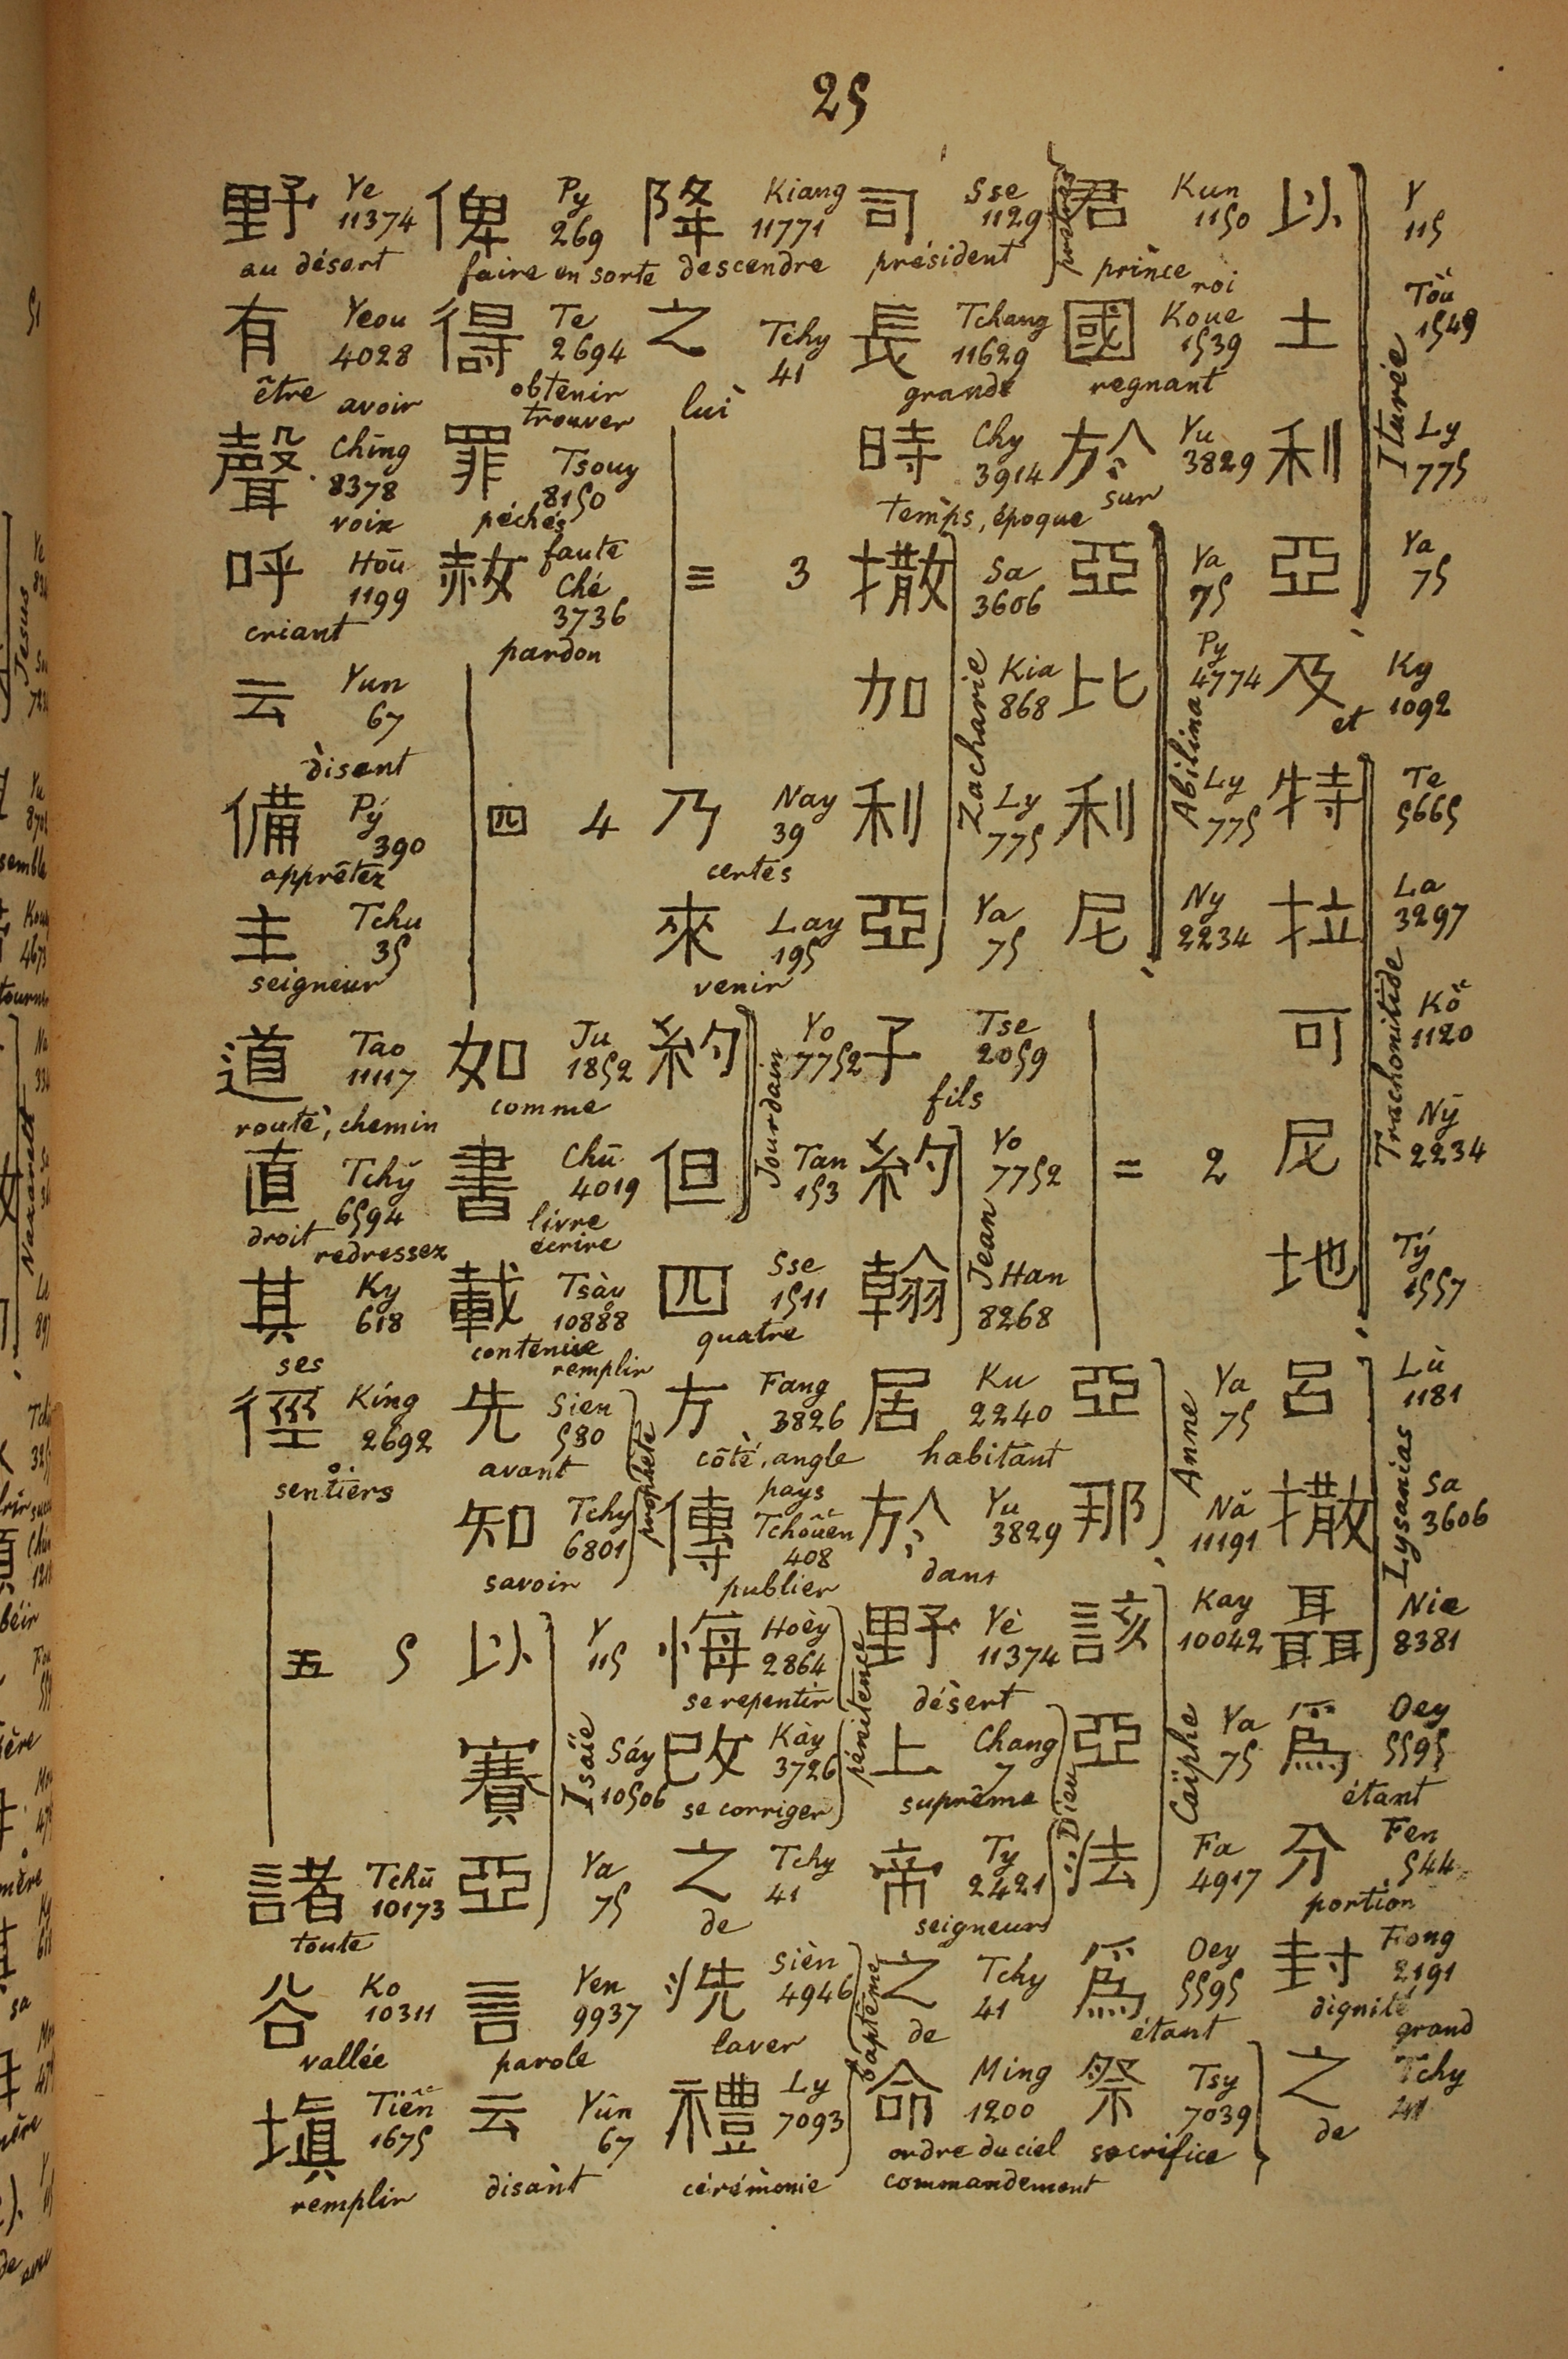 25
以 Y 115
土 Toù 1549
利 Ly 775
亞 Ya 75
Iturée
及 Ky 1092 et
特 Te 5665
拉 La 3297
可 Kǒ 1120
尼 Ný 2234
地 Tý 1557
Trachonitide
呂 Lù 1181
撒 Sa 3606
聶 Nie 8381
Lysanias
爲 Oey 5595 étant
分 Fen 544 portion
封 Fong 2191 dignité grand
之 Tchy 41 de
君 Kun 1150 prince roi
國 Koue 1539 regnant
於 Yu 3829 sur
亞 Ya 75
比 Py 4774
利 Ly 775
尼 Ny 2234
Abilina
= 2
亞 Ya 75
那 Nǎ 11191
Anne
該 Kay 10042
亞 Ya 75
法 Fa 4917
Caïphe
爲 Oey 5595 étant
祭 Tsy 7039 sacrifice
司 Sse 1129 président
長 Tchang 11629 grande
時 Chy 3914 temps, époque
撒 Sa 3606
加 Kia 868
利 Ly 775
亞 Ya 75
Zacharie
子 Tse 2059 fils
約 Yo 7752
翰 Han 8268
Jean
居 Ku 2240 habitant
於 Yu 3829 dans
野 Yè 11374 désert
上 Chang 7 suprême
帝 Ty 2421 seigneur
Dieu
之 Tchy 41 de
命 Ming 1200 ordre du ciel commandement
降 Kiang 11771 descendre
之 Tchy 41 lui
≡ 3
乃 Nay 39 certes
來 Lay 195 venir
約 Yo 7752
但 Tan 153
Jourdain
四 Sse 1511 quatre
方 Fang 3826 côté, angle pays
傳 Tchoüen 408 publier
悔 Hoèy 2864 se repentir
改 Kày 3726 se corriger
pénitence
之 Tchy 41 de
洗 Sièn 4946 laver
禮 Ly 7093 cérémonie
baptême
俾 Py 269 faire en sorte
得 Te 2694 obtenir trouver
罪 Tsouy 8150 péchés faute
赦 Ché 3736 pardon
四 4
如 Ju 1852 comme
書 Chū 4019 livre écrire
載 Tsày 10888 contenir remplir
先 Sien 530 avant
知 Tchy 6801 savoir
prophète
以 Y 115
賽 Sáy 10506
亞 Ya 75
Isaïe
言 Yen 9937 parole
云 Yûn 67 disant
野 Ye 11374 au désert
有 Yeou 4028 être avoir
聲 Ching 8378 voix
呼 Hōu 1199 criant
云 Yun 67 disant
備 Pý 390 apprêtez
主 Tchu 35 seigneur
道 Tao 11117 route, chemin
直 Tchў 6594 droit redressez
其 Ky 618 ses
徑 Kíng 2692 sentiers
五 5
諸 Tchū 10173 toute
谷 Ko 10311 vallée
塡 Tiên 1675 remplir